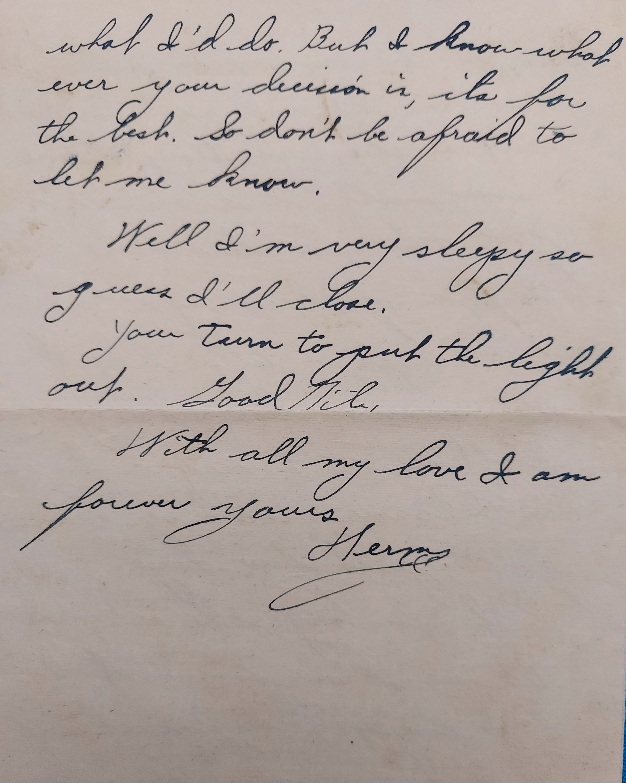 what I'd do. But I know what
ever your decision is, its for
the best. So don't be afraid to
let me know.
Well I'm very sleepy so
guess I'll close.
Your turn to put the light
out. Good Nite,
With all my love I am
forever yours
Herm